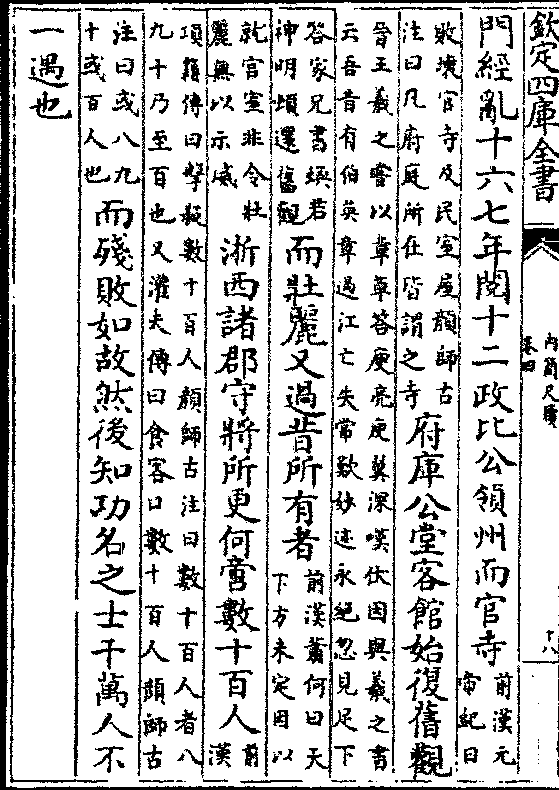 欽定四庫全書
內簡尺牘
卷四
十八
門經亂十六七年閱十二政比公領州而官寺
前漢元
帝紀曰
敗壞官寺及民室屋顏師古
注曰凡府庭所在皆謂之寺
府庫公堂客館始復舊觀
晉王羲之嘗以章草答庾亮庾翼深嘆伏因與羲之書
云吾昔有伯英章過江亡失常歎妙迹永絕忽見足下
答家兄書煥若
神明頓還舊觀
而壯麗又過昔所有者
前漢蕭何曰天
下方未定因以
就宮室非令壯
麗無以示威
浙西諸郡守將所更何啻數十百人
前
漢
項籍傳曰擊殺數十百人顏師古注曰數十百人者八
九十乃至百也又灌夫傳曰食客口數十百人顏師古
注曰或八九
十或百人也
而殘敗如故然後知功名之士千萬人不
一遇也